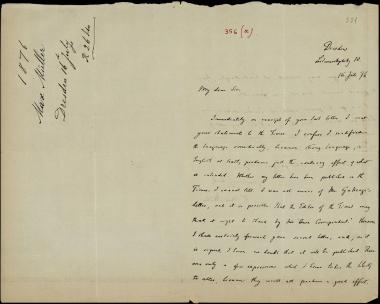 1876
Max Müller
Dresden 16 July
R 26 do
356 (a)
331
Dresden
16 July 76
My dear Sir,
Immediately on receipt of your last letter, I sent
your statement to the Times. I confess I modified
the language somewhat, because strong language, in
English at least, produces just the contrary effect of what
is intended. Whether my letter has been published in the
Times, I cannot tell. I was not aware of Mr
letter, and it is possible that the Editor of the Times may
think it right to stand by his own Correspondent. However
I shall certainly forward your second letter, and, as it
is signed, I have no doubt that it will be published. There
are only a few expressions which I have taken the liberty
to alter, because they would not produce a good effect.